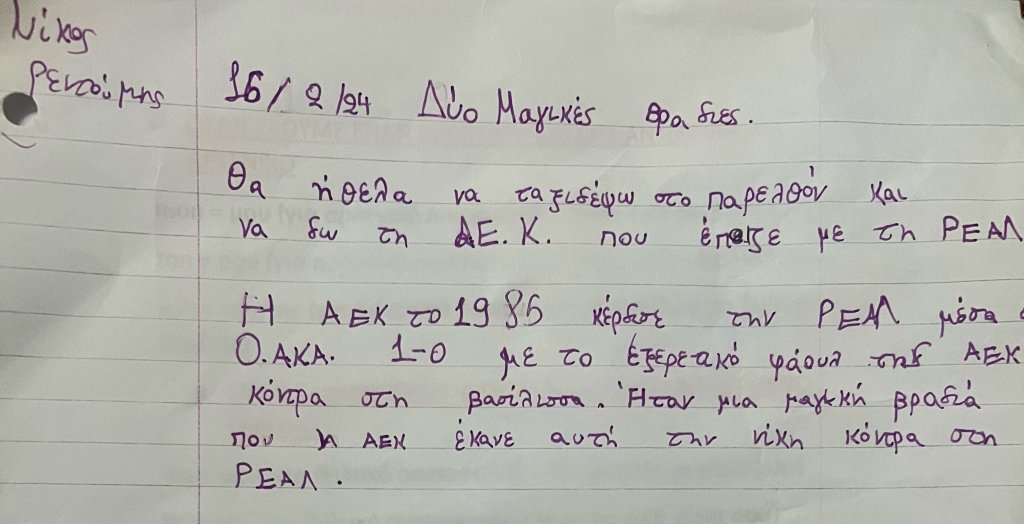 Νίκος
Ρεντούμης
16/2/24 Δύο Μαγικές βραδιες.
Θα ήθελα να ταξιδέψω στο παρελθόν και
να δω τη ΑΕ.Κ. που έπαιζε με τη ΡΕΑΛ
Η ΑΕΚ το 1985 κέρδισε την ΡΕΑΛ μέσα
Ο.ΑΚΑ. 1-0 με το εξερετικό φάουλ της ΑΕΚ
κόντρα στη βασίλισσα. Ήταν μια μαγική βραδιά
που η ΑΕΚ έκανε αυτή την νίκη κόντρα στη
ΡΕΑΛ.